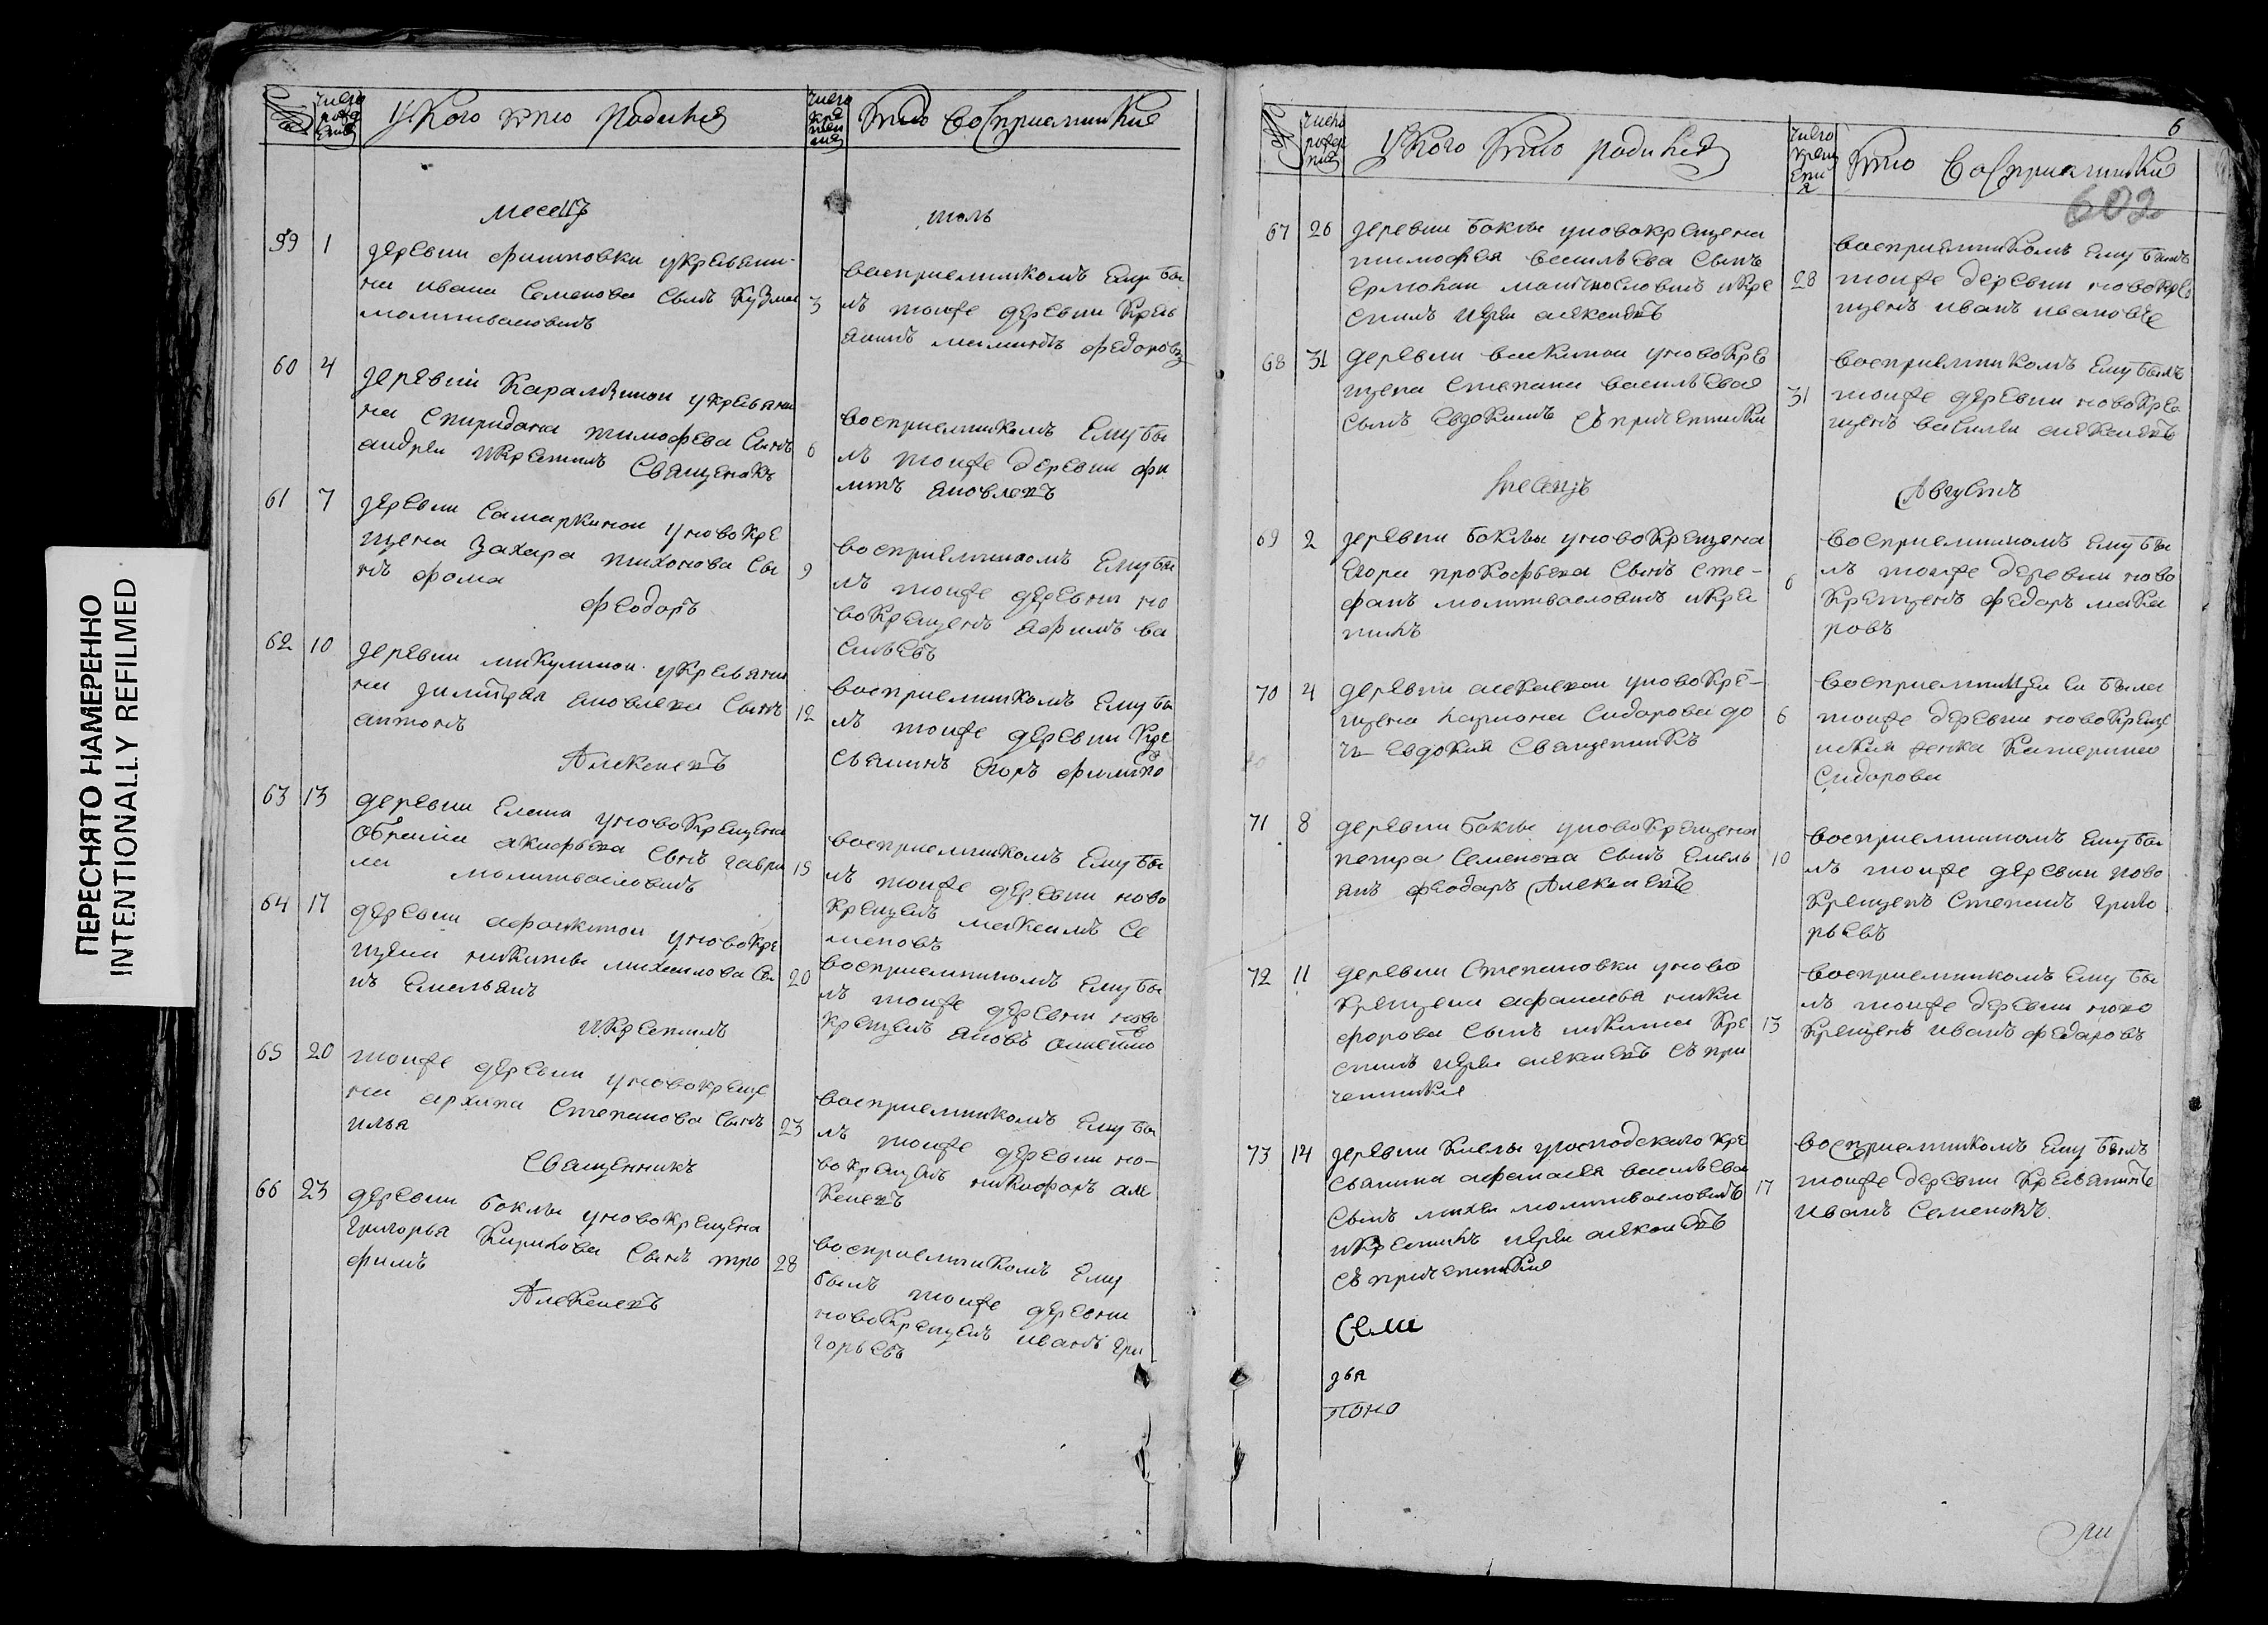 ПЕРЕСНЯТО НАМЕРЕННО
INTENTIONALLY REFILMED
число рожде ния
У Кого кто родился
число кре щен ия
Кто восприемники
месецъ
июль
59 1 деревни филиповки укресьяни-
на ивана Семенова Сынъ Кузма
молитвословилъ
3 восприемникомъ Ему бы
лъ тоиже деревни Кресь
янинъ федоровъ
60 4 деревни Карамзинои укресьяни
на Спиридона тимофеева Сынъ
андреи икрестилъ Священикъ
6 восприемникомъ Ему бы
лъ тоиже деревни фи
липъ яковлевъ
61 7 деревни Самаркинои уновокре
щена Захара тихонова Сы
нъ фома
феодоръ
9 восприемникомъ Ему бы
лъ тоиже деревни но
вокрещенъ ефимъ ва
сильевъ
62 10 деревни микулинои укресьяни
на димитрея яковлева Сынъ
антонъ
Алексеевъ
12 восприемникомъ Ему бы
лъ тоиже деревни Кре
сьянинъ Егоръ
63 13 деревни Елани уновокрещена
акифьева Сынъ гаври
ла молитвословилъ
15 восприемникомъ Ему бы
лъ тоиже деревни ново
крещенъ максимъ Се
меновъ
64 17 деревни афонкинои уновокре
щена никиты михаилова Сы
нъ Емельянъ
икрестилъ
20 восприемникомъ Ему бы
лъ тоиже деревни ново
крещенъ яковъ
65 20 тоиже деревни уновокреще
на архипа Степанова Сынъ
илья
Священникъ
23 восприемникомъ Ему бы
лъ тоиже деревни но-
вокрещенъ никифоръ але
ксеевъ
66 23 деревни боклы уновокрещена
Григорья Кирилова Сынъ тро
фимъ
Алексеевъ
28 восприемникомъ Ему
былъ тоиже деревни
новокрещенъ иванъ гри
горьевъ
6
602
число рожде ния
У Кого Кто родился
число крещ ени я
Кто восприемники
67 26 деревни боклы уновокрещена
тимофея васильева Сынъ
Ермолаи молитвословилъ икре
стилъ иереи алексеевъ
28 восприемникомъ Ему былъ
тоиже деревни новокре
щенъ иванъ ивановъ
68 31 деревни васкинои уновокре
щена Степана васильева
Сынъ Евдокимъ Съ причетники
31 восприемникомъ Ему былъ
тоиже деревни новокре
щенъ василеи алексеевъ
месецъ
Августъ
69 2 деревни боклы уновокрещена
Егора прокофьева Сынъ Сте-
фанъ молитвословилъ икре
тилъ
6 восприемникомъ Ему бы
лъ тоиже деревни ново
крещенъ федоръ мака
ровъ
70 4 деревни уновокре-
щена лариона Сидорова до
чь Евдокия Священникъ
6 восприемницеи Еи была
тоиже деревни новокреще
нская девка Катерина
Сидорова
71 8 деревни боклы уновокрещена
петра Семенова Сынъ Емель
янъ феодоръ Алексеевъ
10 восприемникомъ Ему бы
лъ тоиже деревни ново
крещенъ Степанъ григо
рьевъ
72 11 деревни Степановки уново
крещена афанасья ники
форова Сынъ никита Кре
стилъ иереи алексеевъ Съ при
четники
13 восприемникомъ Ему бы
лъ тоиже деревни ново
крещенъ иванъ федоровъ
73 14 деревни Кислы господского кре
сьянина афанасея васильева
Сынъ михеи молитвословилъ
икрестилъ иереи алексеевъ
Съ причетники
17 восприемникомъ Ему былъ
тоиже деревни кресьянинъ
иванъ Семеновъ
Семи
дья
поно